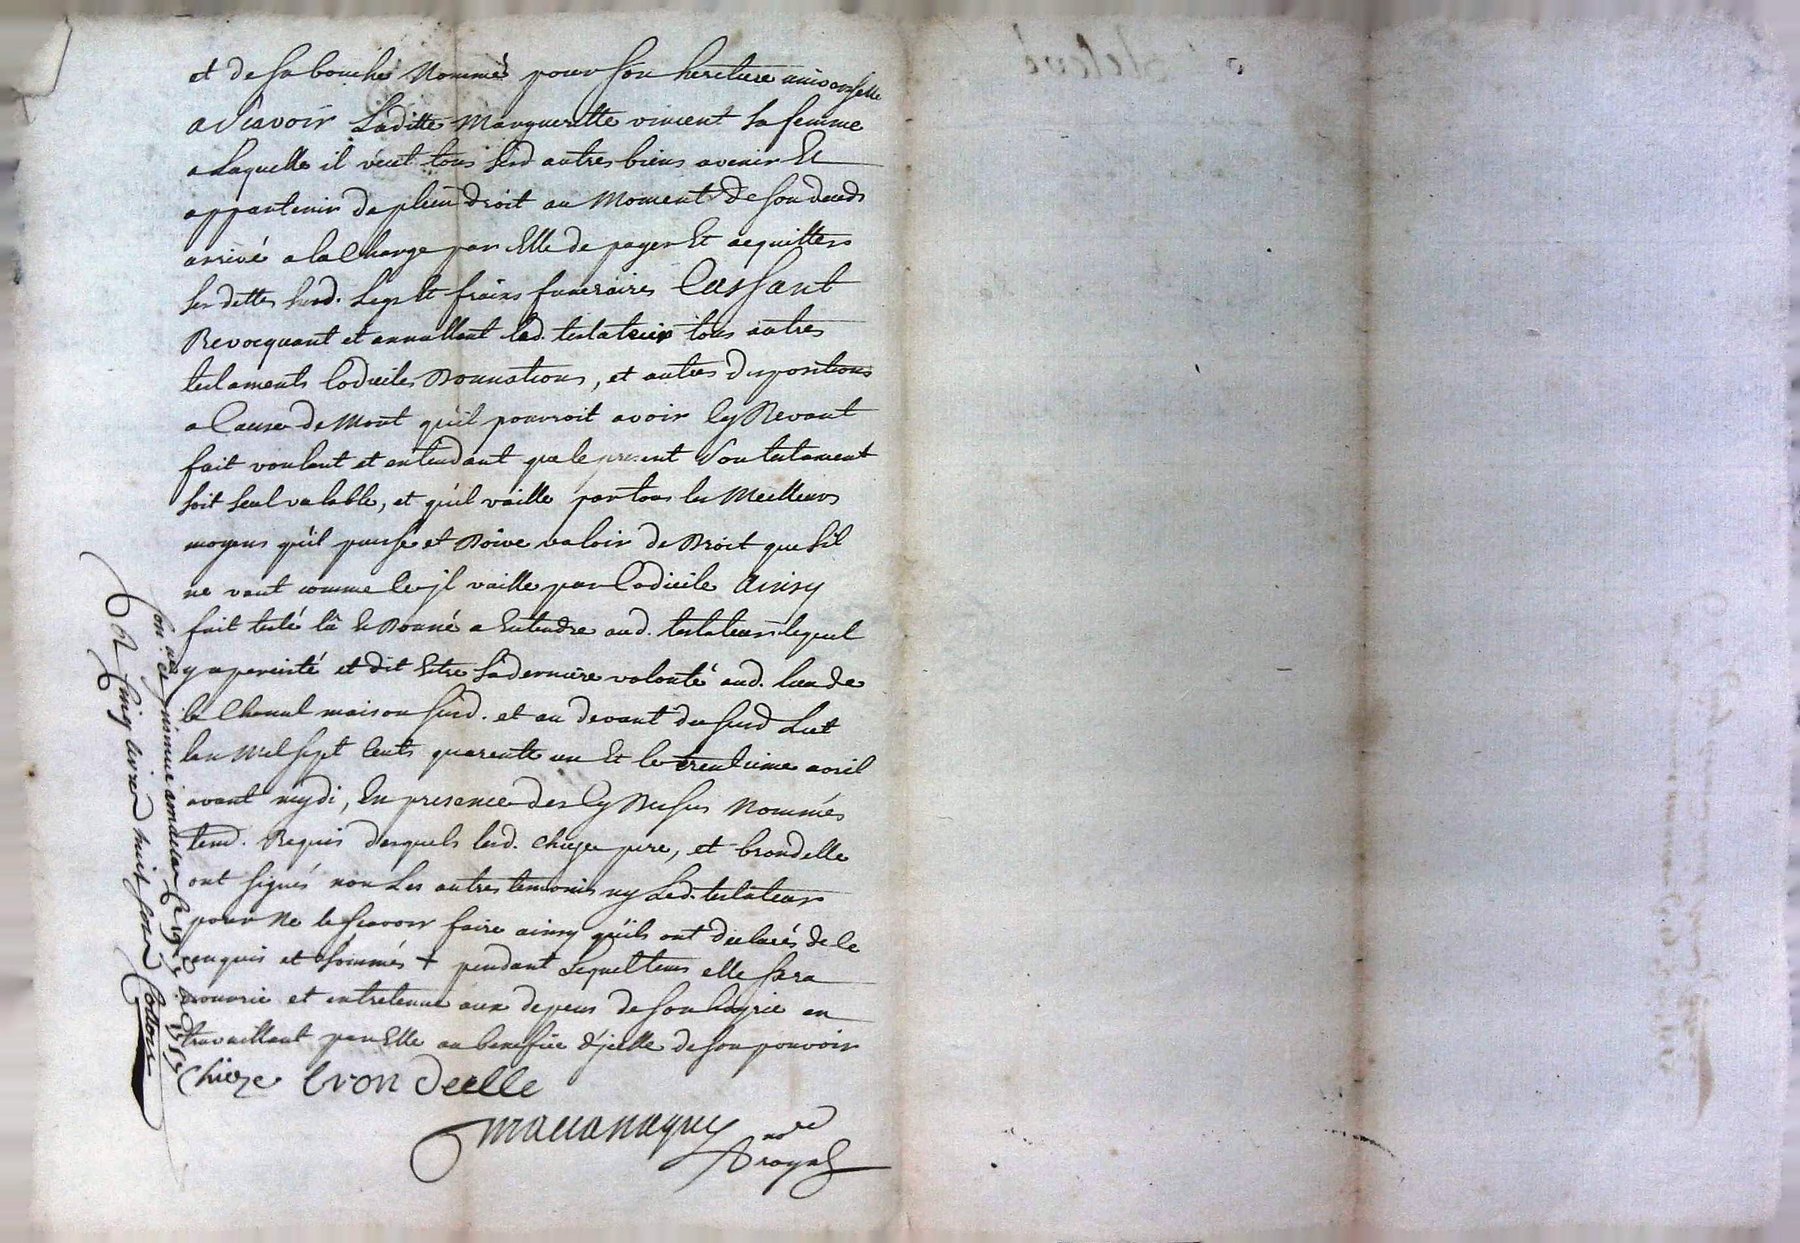 et de sa bouche nommé pour son heretiere universelle
a scavoir Laditte Margueritte vincent sa femme
a Laquelle il veut tous sesd autres biens avenir Et
appartenir de plein droit au moment de son deceds
arrivé a la Charge par Elle de payer Et acquitter
ses dettes susd. Legs Et fraixs funeraires Cassant
Revocquant et annullant led. testateur tous autres
testaments Codiciles Donnations, et autres dispositions
a Cause de Mort qu'il pourroit avoir Cy Devant
fait voulant et entendant que le present son testament
soit seul valable, et qu'il vaille par tous les Meilleurs
moyens qu'il puisse et Doive valoir de Droit que s'il
ne vaut comme tel jl vaille par Codicile Ainsy
fait testé lû Et Donné a Entendre aud. testateur lequel
y a percisté et dit Estre sa derniere volonté aud. lieu de
la Chenal maison susd. et au devant du susd
Lan Mil sept Cents quarente un Et le trentieme avril
avant mydi, En presence des Cy Dessus Nommés
tem. Requis desquels lesd. Chieze pere, et brondelle
ont signés non Les autres temoins ny Led. testateur
pour Ne le scavoir faire ainsy qu'ils ont declarés de ce
enquis et sommés + pendant Lequel tems elle sera
nourrie et entretenue aux depens de son hoyrie en
travaillant par Elle au benefice d'jcelle de son pouvoir
Chieze bron delle
no.re
royal
Con.lé et jnsinué
R. Cinq livres huit sous